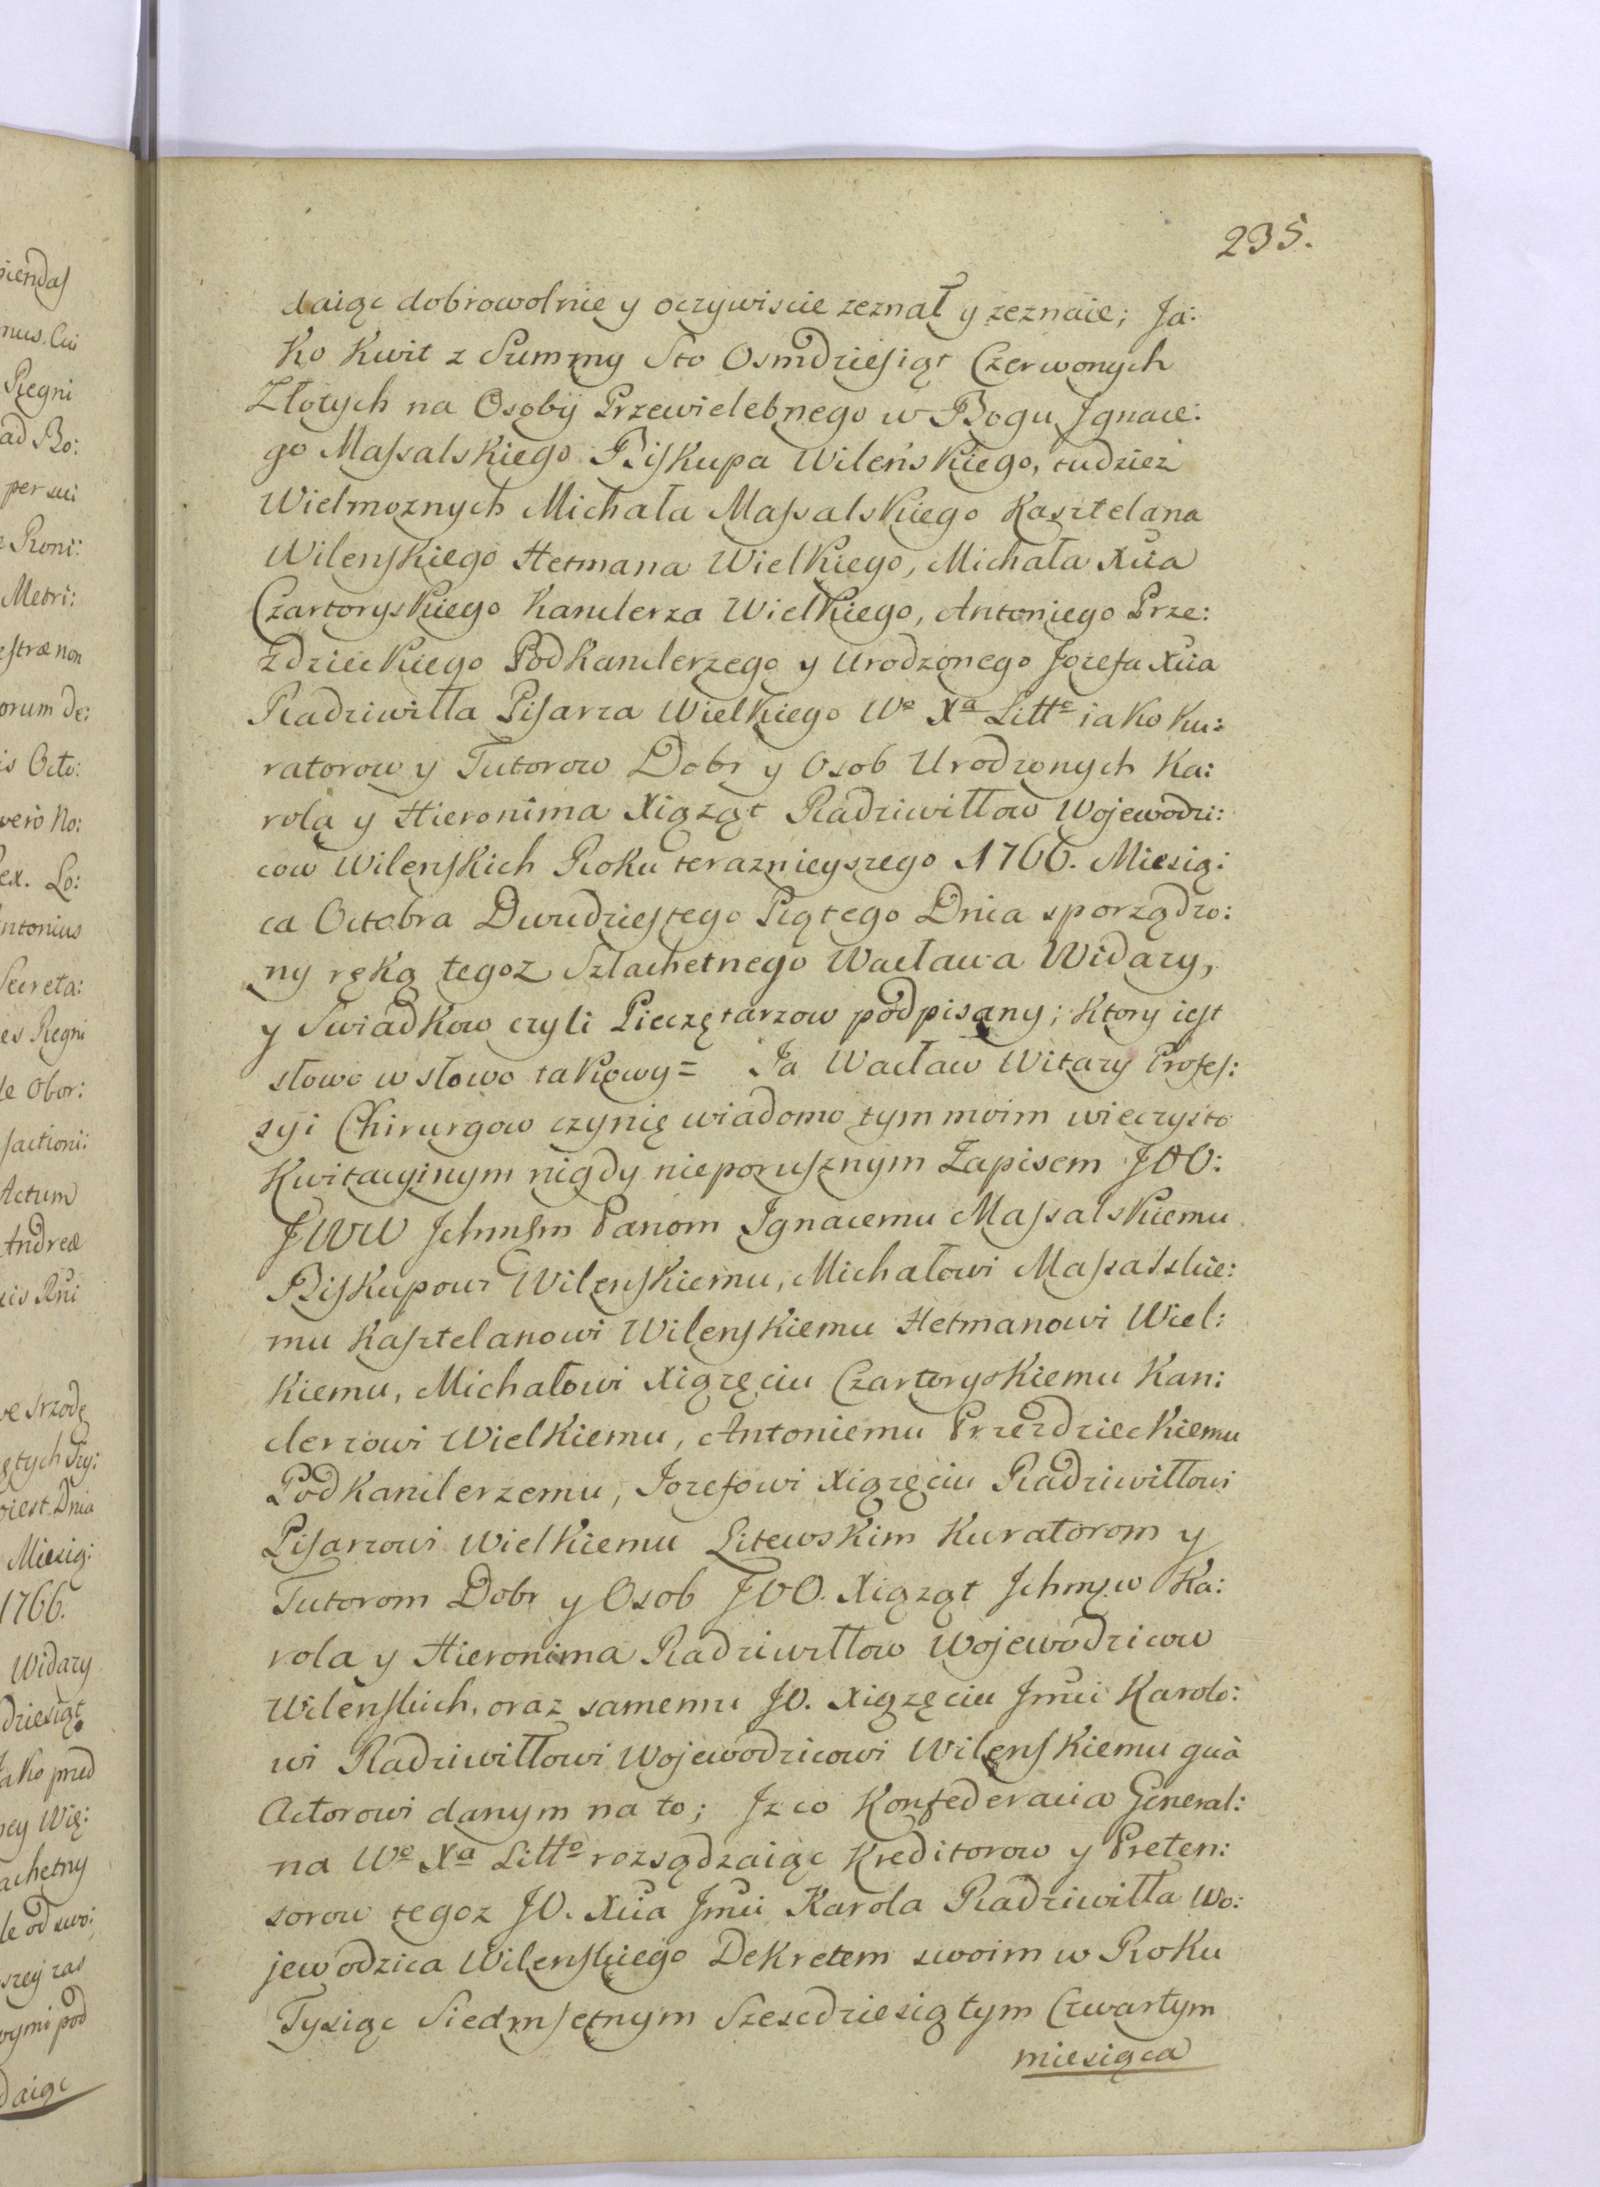 235.
daiąc dobrowolnie y oczywiscie zeznał y zeznaie; Ja:
ko Kwit z Summy Sto Osmdziesiąt Czerwonych
Złotych na Osoby Przewielebnego w Bogu Ignace:
go Massalskiego Biskupa Wileńskiego, tudziez
Wielmoznych Michała Massalskiego Kasztelana
Wilenskiego Hetmana Wielkiego, Michała Xcia
Czartoryskiego Kanclerza Wielkiego, Antoniego Prze:
zdzieckiego Podkanclerzego y Urodzonego Jozefa Xcia
Radziwiłła Pisarza Wielkiego Wo Xa Litto iako Ku:
ratorow y Tutorow Dobr y Osob Urodzonych Ka:
rola y Hieronima Xiąząt Radziwiłłow Wojewodzi:
cow Wilenskich Roku teraznieyszego 1766. Miesią:
ca Octobra Dwudziestego Piątego Dnia sporządzo:
ny ręką tegoz Szlachetnego Wacława Widazy,
y Swiadkow czyli Pieczętarzow podpisany; Ktory iest
słowo w słowo takowy = Ja Wacław Witazy Profes:
syi Chirurgow czynię wiadomo tym moim wieczysto
Kwitacyinym nigdy nieporusznym Zapisem JOO:
JWW Ichmsm Panom Ignacemu Massalskiemu
Biskupowi Wilenskiemu, Michałowi Massalskie:
mu Kasztelanowi Wilenskiemu Hetmanowi Wiel:
kiemu, Michałowi Xiązęciu Czartoryskiemu Kan:
clerzowi Wielkiemu, Antoniemu Przezdzieckiemu
Podkanclerzemu, Jozefowi Xiązęciu Radziwiłłowi
Pisarzowi Wielkiemu Litewskim Kuratorom y
Tutorom Dobr y Osob JOO. Xiąząt Ichmsw Ka:
rola y Hieronima Radziwiłłow Wojewodzicow
Wilenskich, oraz samemu JO. Xiązęciu Jmci Karolo:
wi Radziwiłłowi Wojewodzicowi Wilenskiemu quà
Actorowi danym na to; Iz co Konfederacia General:
na Wo Xa Litto rozsądzaiąc Kreditorow y Preten:
sorow tegoz JO. Xcia Jmci Karola Radziwiłła Wo:
jewodzica Wilenskiego Dekretem swoim w Roku
Tysiąc Siedmsetnym Szescdziesiątym Czwartym
miesiąca